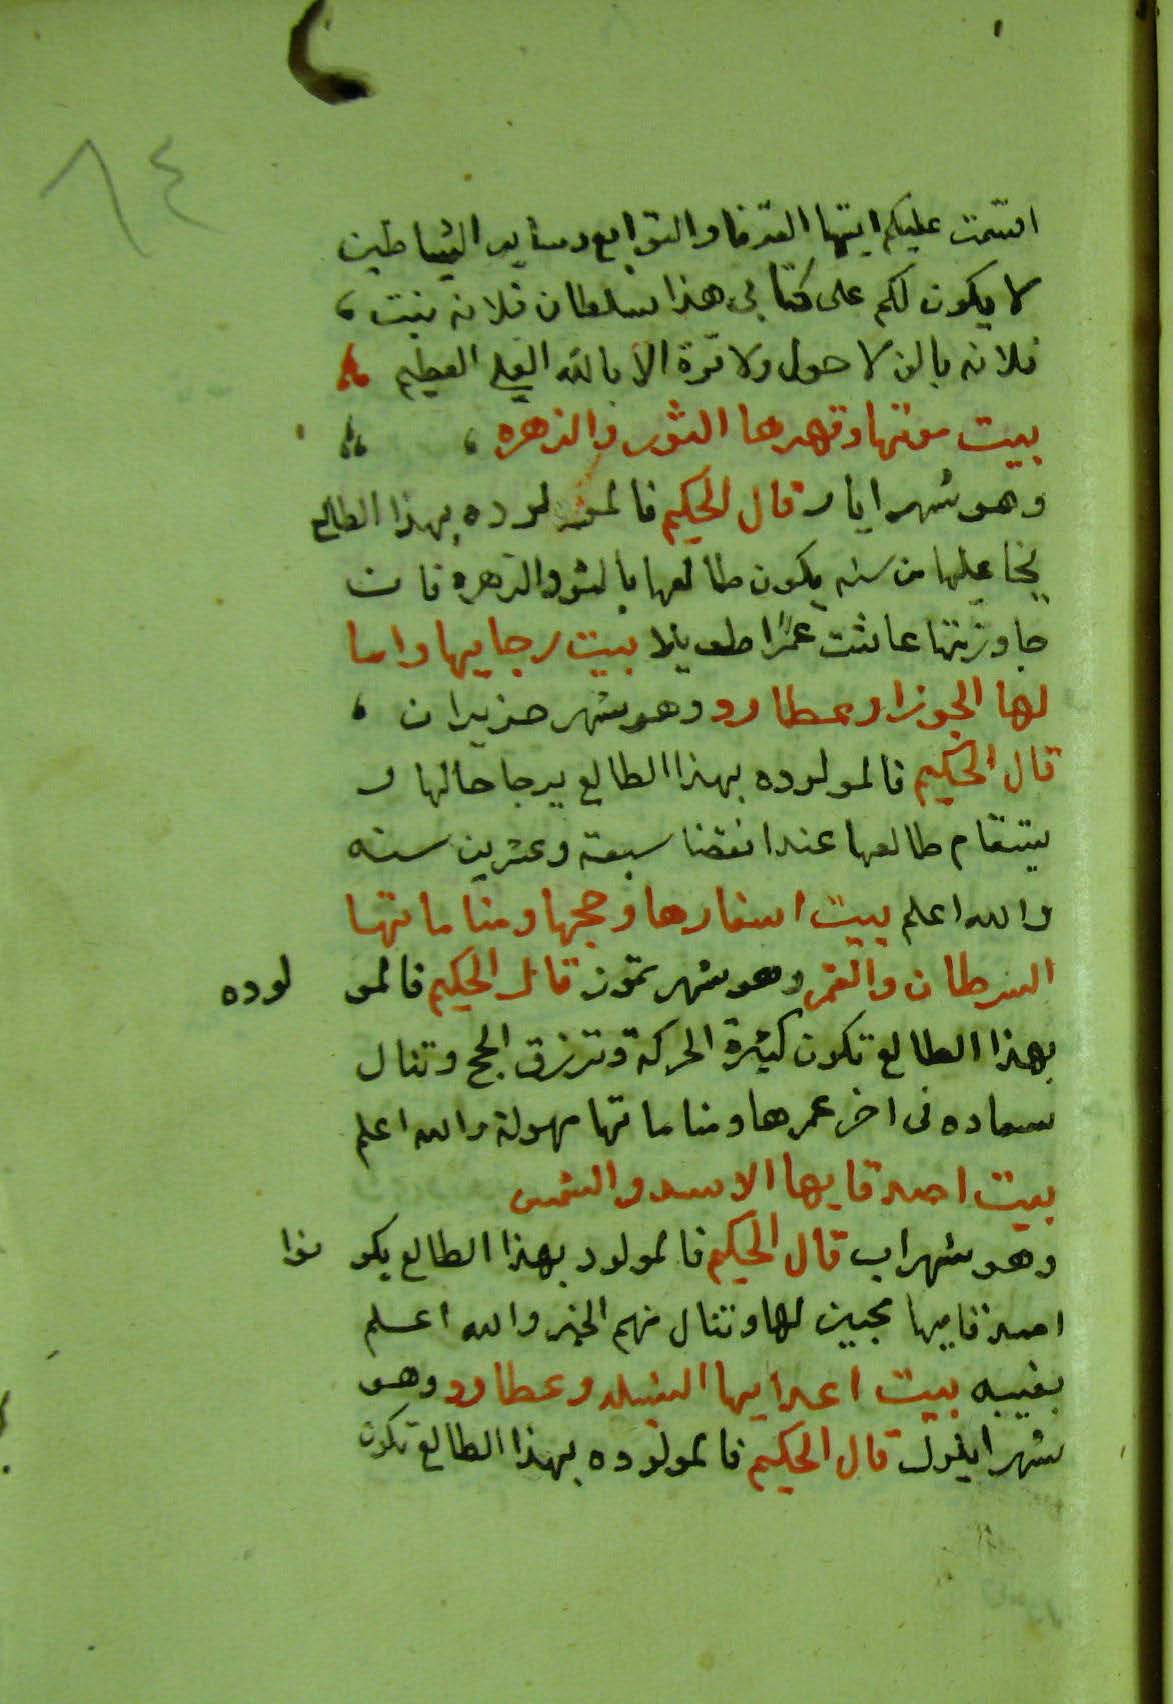 ٨٤
اقسمت عليكم ايتها القرنا والتوابع وساير الشياطين
لا يكون لكم على كتابي هذا سلطان فلانه بنت
فلانه بالف لا حول ولا قوة الا بالله العلي العظيم
بيت موتها وقهرها الثور والزهره
وهو شهر ايار قال الحكيم فالمولوده بهذا الطالع
يخا عليها من سنه يكون طالعها بالثور والزهره فان
جاوزتها عاشت عمرًا طويلا بيت رجايها واما
لها الجوزا وعطارد وهو شهر حزيران
قال الحكيم فالمولوده بهذا الطالع يرجا حالها و
يتقام طالعها عند انقضا سبعة وعشرين سنه
والله اعلم بيت اسفارها وحجها ومناماتها
السرطان والقمر وهو شهر تموز قال الحكيم فالمو لوده
بهذا الطالع تكون كثيرة الحركة وترزق الحج وتنال
سعاده في اخر عمرها ومناماتها مهولة والله اعلم
بيت اصدقايها الاسد والشمس
وهو شهر اب قال الحكيم فالمولود بهذا الطالع يكو نوا
اصدقايها محبين لها وتنال منهم الخير والله اعلم
بغيبه بيت اعدايها السنبله وعطارد وهو
شهر ايلول قال الحكيم فالمولوده بهذا الطالع تكون